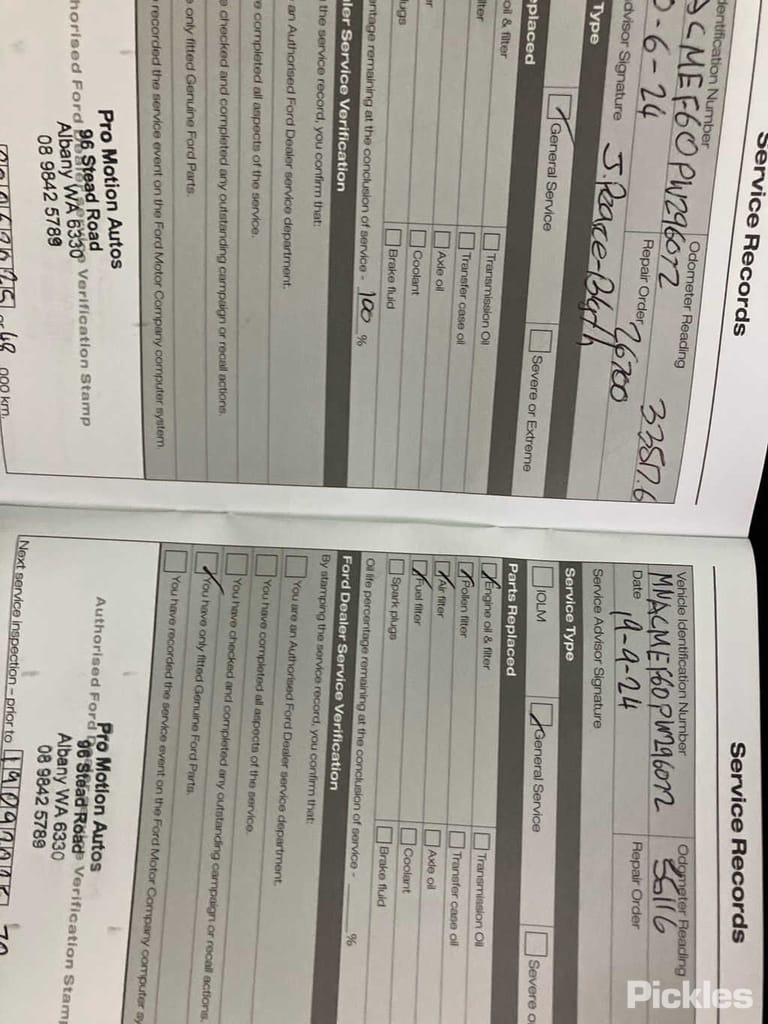 Service Records
dentification Number
Odometer Reading
ACMEF60PW296072
0-6-24
Repair Order
26700
dvisor Signature
J. Pearce-
Type
General Service
Severe or Extreme
eplaced
oil & filter
Transmission Oil
ilter
Transfer case oil
er
Axle oil
Coolant
lugs
Brake fluid
entage remaining at the conclusion of service - 100 %
aler Service Verification
the service record, you confirm that:
e an Authorised Ford Dealer service department.
e completed all aspects of the service.
e checked and completed any outstanding campaign or recall actions.
e only fitted Genuine Ford Parts.
e recorded the service event on the Ford Motor Company computer system.
Pro Motion Autos
96 Stead Road
Albany WA 6330
08 9842 5789
horised Ford Dealer Service Verification Stamp
or 48 000 km.
Service Records
Vehicle Identification Number
Odometer Reading
MNACMEF60PW296072
36116
Date 19-9-24
Repair Order
Service Advisor Signature
Service Type
IOLM
General Service
Severe o
Parts Replaced
Engine oil & filter
Transmission Oil
Pollen filter
Transfer case oil
Air filter
Axle oil
Fuel filter
Coolant
Spark plugs
Brake fluid
Oil life percentage remaining at the conclusion of service - %
Ford Dealer Service Verification
By stamping the service record, you confirm that:
You are an Authorised Ford Dealer service department.
You have completed all aspects of the service.
You have checked and completed any outstanding campaign or recall actions.
You have only fitted Genuine Ford Parts.
You have recorded the service event on the Ford Motor Company computer sy
Pro Motion Autos
96 Stead Road
Albany WA 6330
08 9842 5789
Authorised Ford Dealer Service Verification Stamp
Next service inspection – prior to
70
Pickles